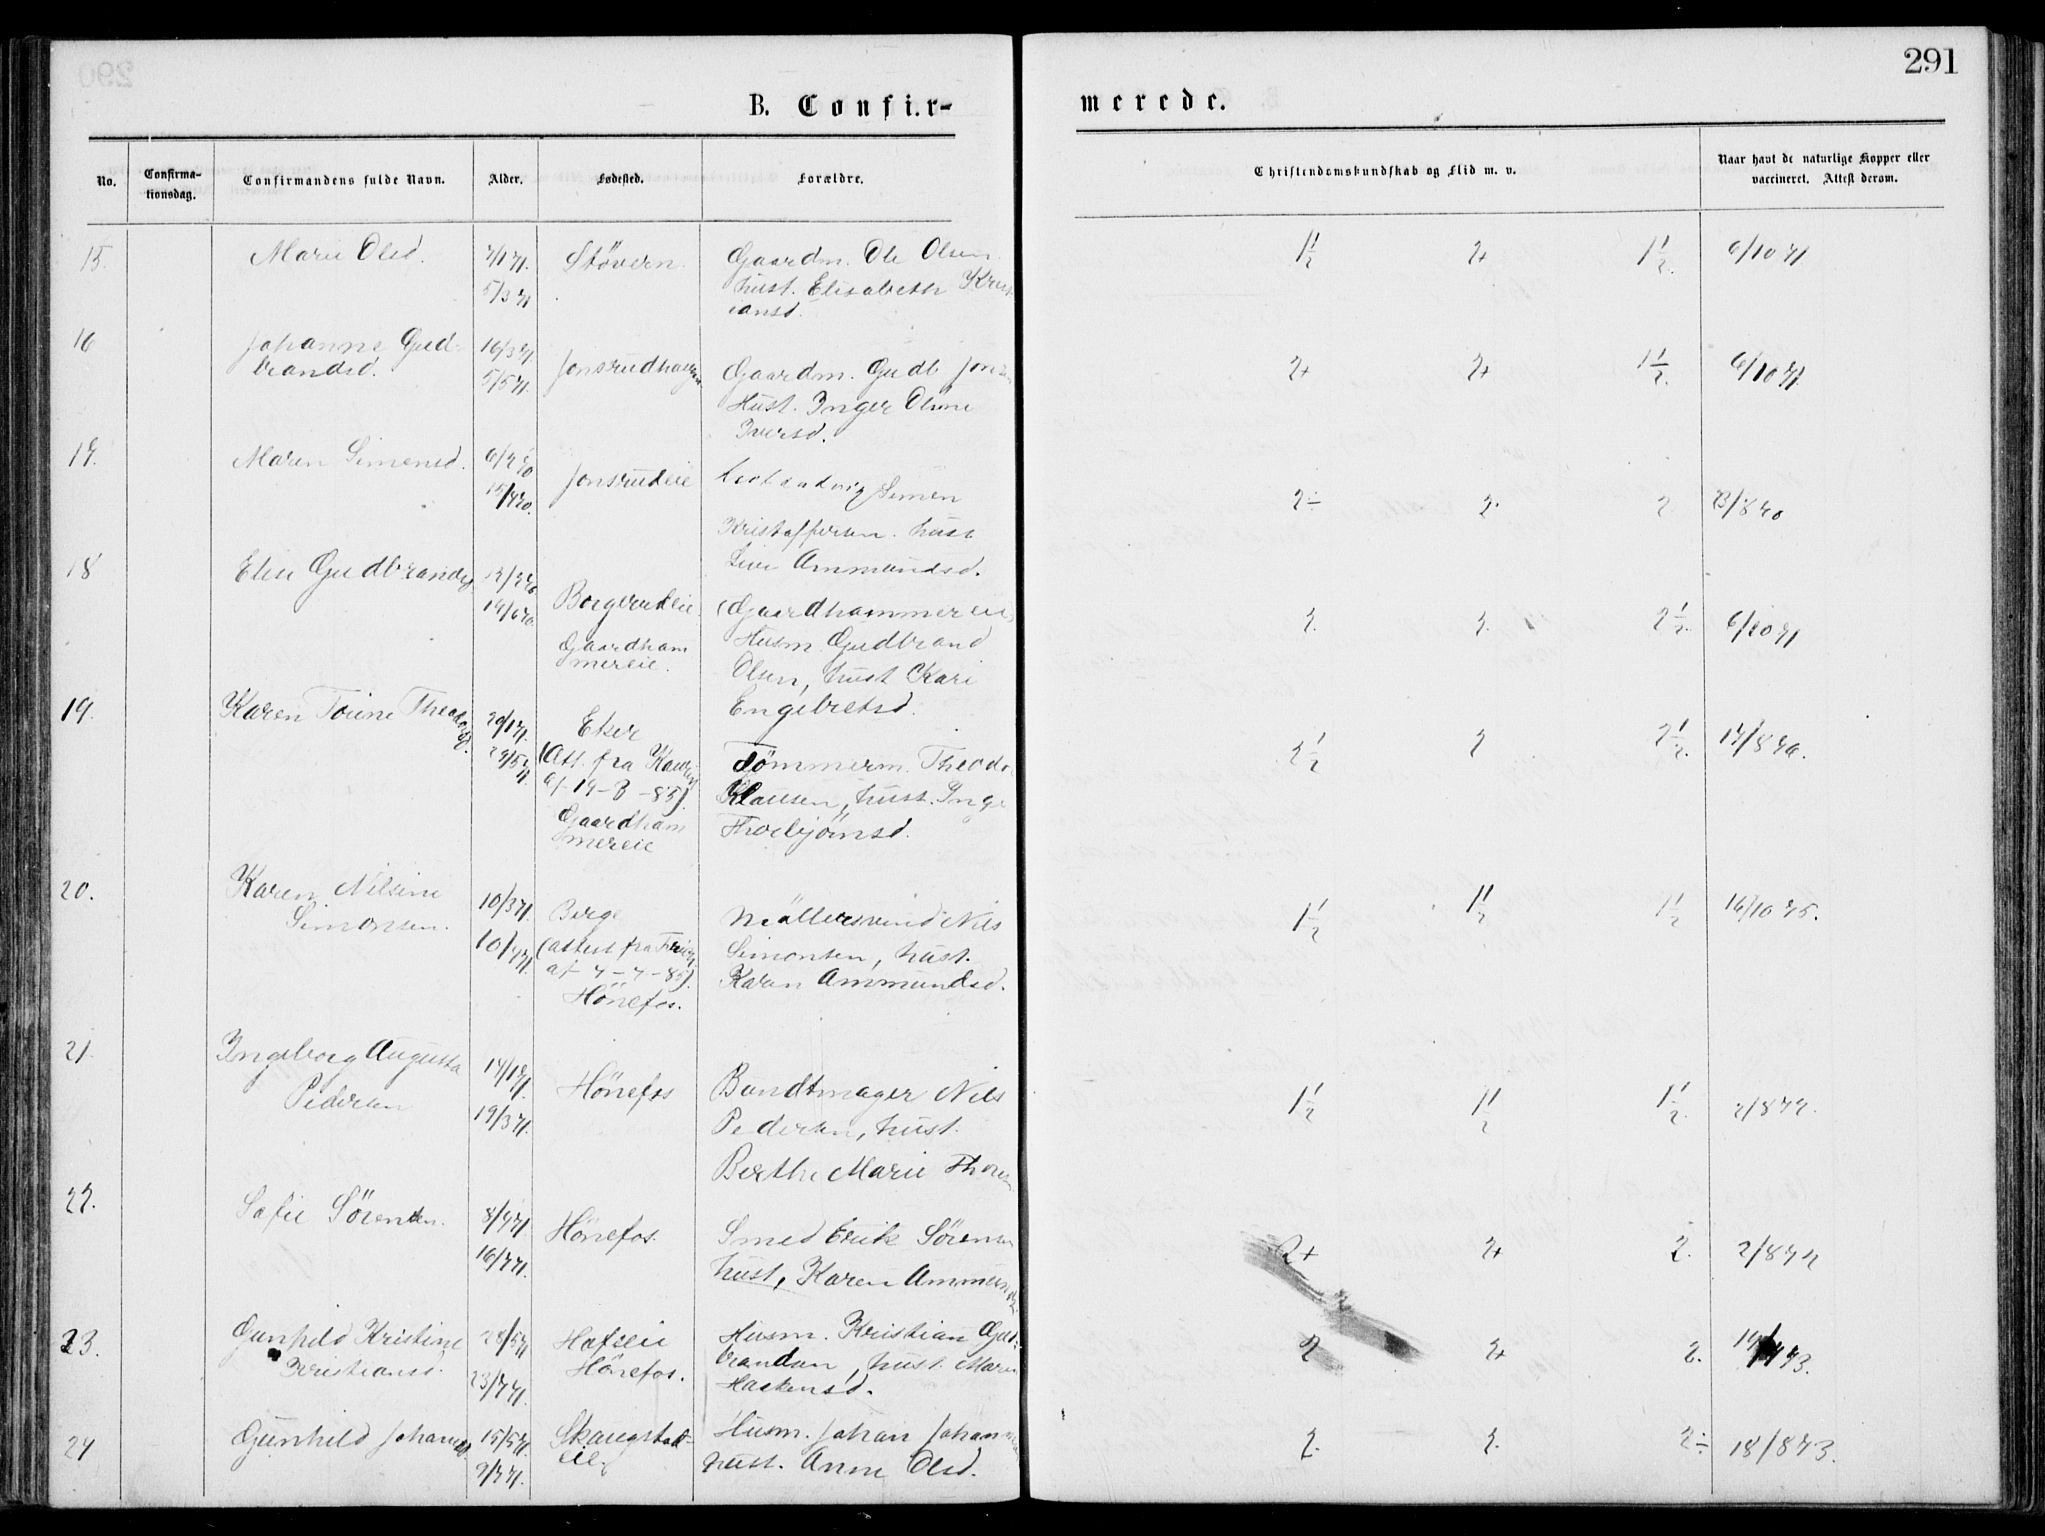 291
B. Confir-
merede.
No.
Confirma-
tionsdag.
Confirmandens fulde Navn.
Alder.
Fødested.
Forældre.
Christendomskundskab og Flid m. v.
Naar havt de naturlige Kopper eller
vaccineret. Attest derom.
15. Marie Olsd. 7/1 71. Stövern. Gaardm. Ole Olsen
5/3 71 hust. Elisabeth Krist
iansd.
1½ 2+ 1½. 6/10 71
16 Johanne Gud- 16/3 71. Jonsrudhagen Gaardm. Gudb Jonsen
brandsd. 5/5 71. Hust. Inger Oline
Iversd.
2+ 2+ 1½. 6/10 71
17. Maren Simensd. Jonsrudeie Simen
15/4 70. Kristoffersen. hust
Live Ammundsd.
2÷ 2 2 23/8 70
18 Elise Gudbrandsd Borgerudeie (Gaardhammereie)
14/6 70. Gaardham Husm. Gudbrand
mereie. Olsen, hust Kari
Engebretsd.
2. 2. 2½. 6/10 71
19. Karen Toline Theodorsd. 20/1 71. Eker
29/5 71. (Att. fra Tömmerm. Theodor
af 19-3-85). Klausen, hust. Inge
Gaardham Thorbjörnsd.
mereie
2½ 2 2½. 17/8 76.
20. Karen Nilsine 10/3 71. Berge Möllersvend Nils
Simonsen. 10/4 71. (attest fra Simonsen, hust.
af 7-4-85). Karen Ammundsd.
Hönefos.
1½ 1½ 1½ 16/10 75.
21. Ingeborg Augusta 14/1 71. Hönefos Bundtmager Nils
Pedersen 19/3 71. Pedersen, hust.
Berthe Marie Thoresen
1½ 1½ 1½. 2/8 72.
22. Sofie Sörensen. 8/4 71. Hönefos. Smed Erik Sörensen
16/7 71. hust, Karen Ammundsd.
2+ 2+ 2. 2/8 72
23. Gunhild Kristine 28/5 71 Hofseie Husm. Kristian Gud-
Kristiansd. 23/7 71. Hönefos. brandsen, hust. Maren
Haakensd.
2 2+ 2.
24 Gunhild Johansd. 15/5 71. Skaugstad- Husm. Johan Johannsen
9/7 71. eie hust. Anne Olsd.
2. 2. 2÷ 18/8 73.